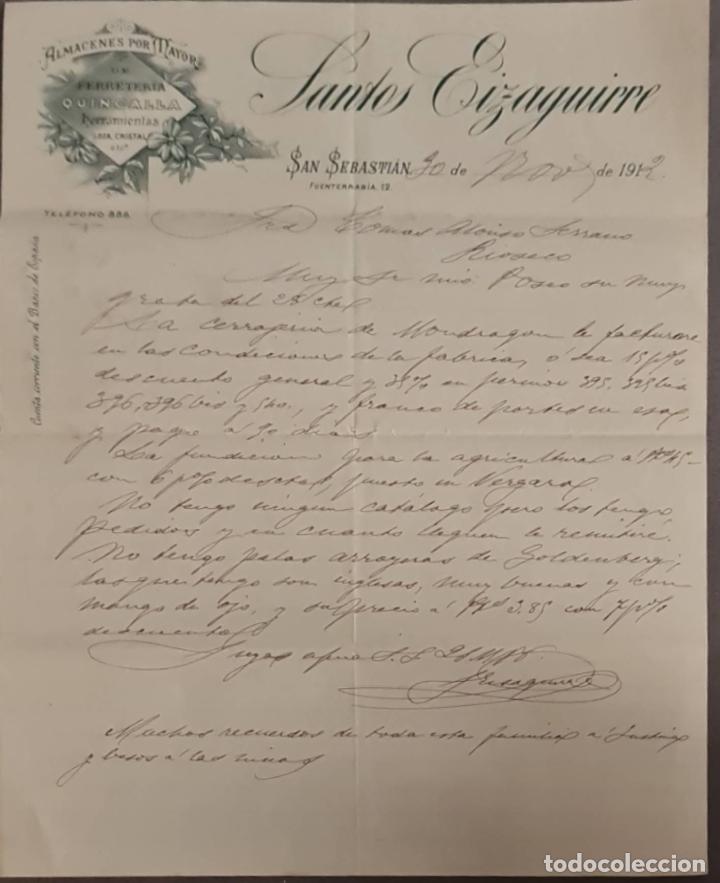 ALMACENES POR MAYOR
DE
FERRETERÍA
QUINCALLA
Herramientas
LOZA, CRISTAL
&
Santos Eizaguirre
SAN SEBASTIÁN, 30 de Nov de 1912
FUENTERRABÍA, 12.
TELÉFONO 888
Cuenta corriente con el Banco de España
Tomas Alonso Serrano
Rioseco
Muy Sr mio Poseo su muy
grata del 28 
La cerrajeria de Mondragon le facturare
en las condiciones de la fabrica, ó sea 15 p%
descuento general y 35% en pernios 395. 395 bis
396, 396 bis y 540., y franco de portes en esa,
y pago á 90 dias
La fundicion para la agricultura á 45-
con 6 p% descto, puesto en Vergara
No tengo ningun catálogo pero los tengo
pedidos y en cuanto lleguen le remitiré.
No tengo palas arroyeras de Goldenberg;
las que tengo son inglesas, muy buenas y con
mango de ojo, y su precio á Pts 3.85 con 7 p%
descuento
Suyo afmo S.S.
Eizaguirre
Muchos recuerdos de toda esta familia á
y besos á las niñas
todocoleccion
todocoleccion.net